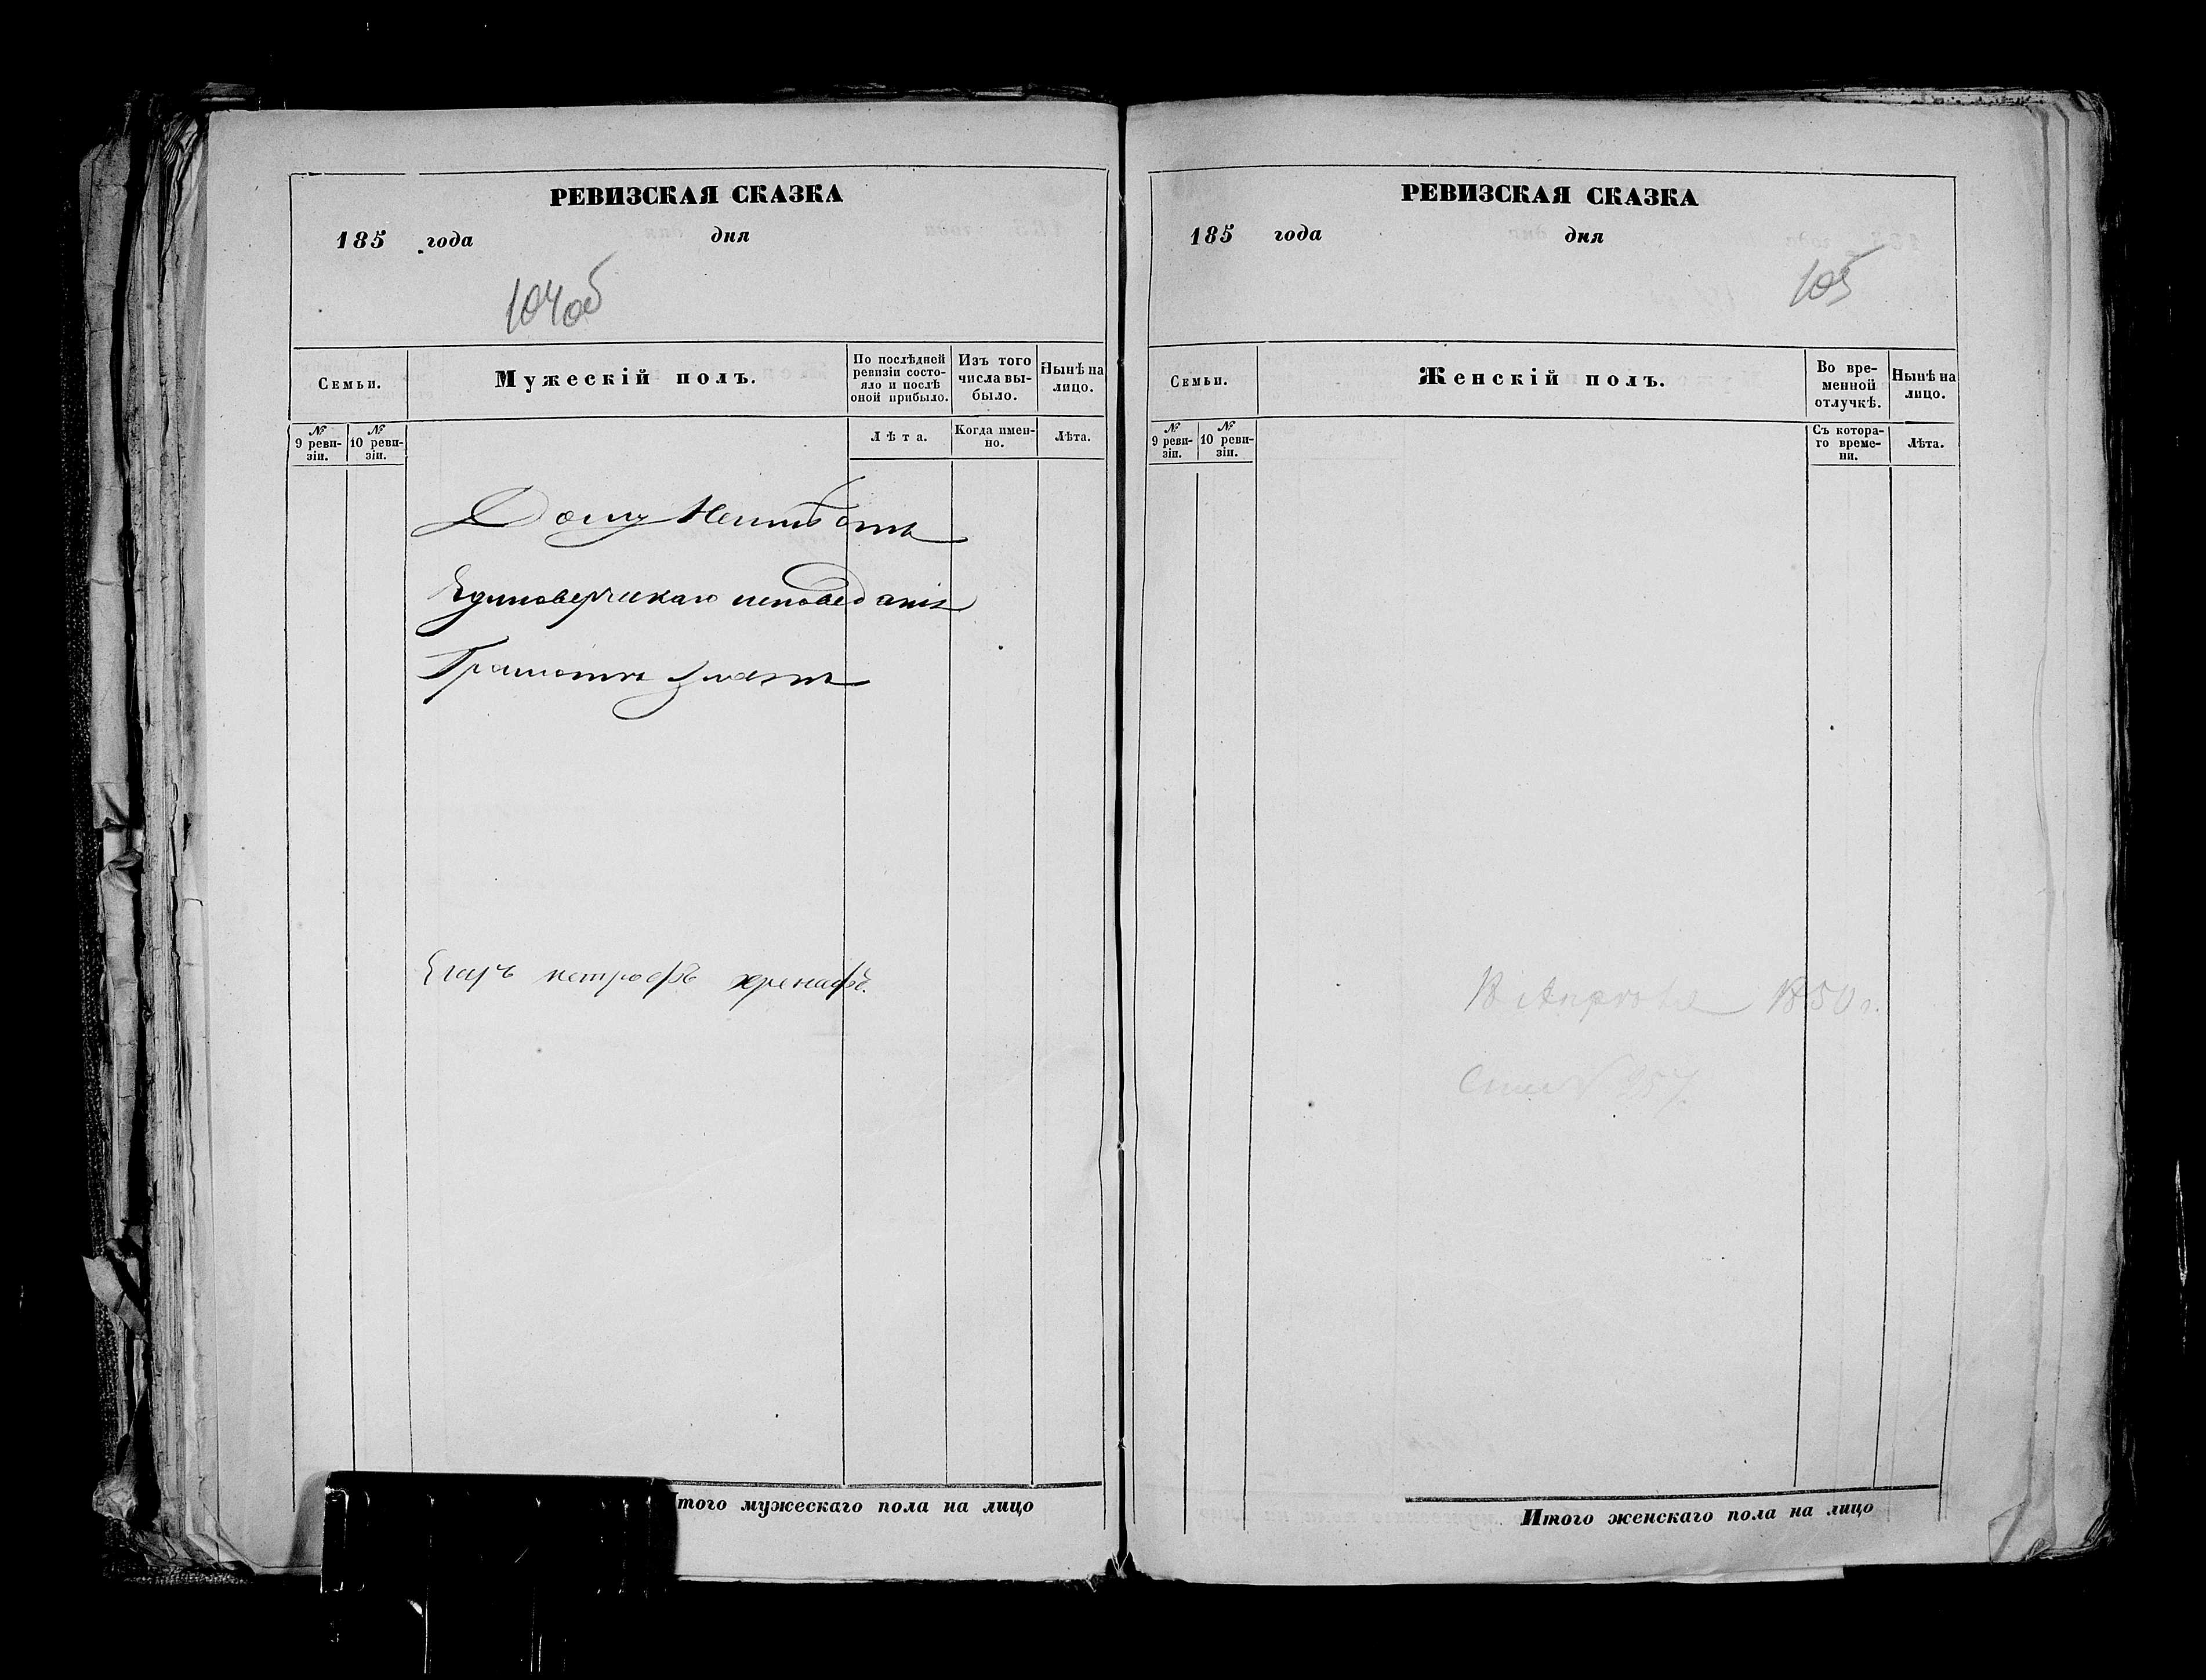 РЕВИЗСКАЯ СКАЗКА
185 года дня
104об
Семьи.
Мужескій полъ.
По послѣдней ревизіи состо-
яло и послѣ
оной прибыло.
Изъ того
числа вы-
было.
Нынѣ на
лицо.
№
9 реви-
зіи.
№
10 реви-
зіи.
Лѣта.
Когда имен-
но.
Лѣта.
Дому Неимѣетъ
Единоверческаго исповеданія
Грамоти знаетъ
Егоръ петрофъ
Итого мужескаго пола на лицо
РЕВИЗСКАЯ СКАЗКА
185 года дня
105
Семьи.
Женскій полъ.
Во вре-
менной
отлучкѣ.
Нынѣ на
лицо.
№
9 реви-
зіи.
№
10 реви-
зіи.
Съ котора-
го време-
ни.
Лѣта.
18 Апреля 1850 г.
257
Итого женскаго пола на лицо